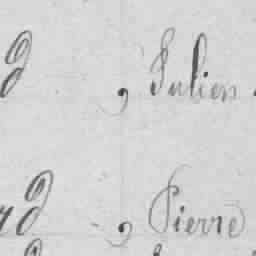 d , Julien
rd , Pierre